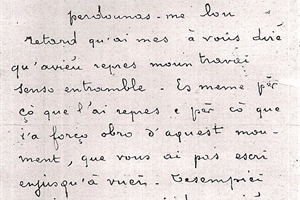 perdounas-me lou
retard qu'ai mes à vous dire
qu'avieu repres moun travai
senso entramble. Es meme pèr
çò que l'ai repres e pèr çò que
i'a forço obro d'aquest mou-
ment, que vous ai pas escri
enjusqu'à vuei.